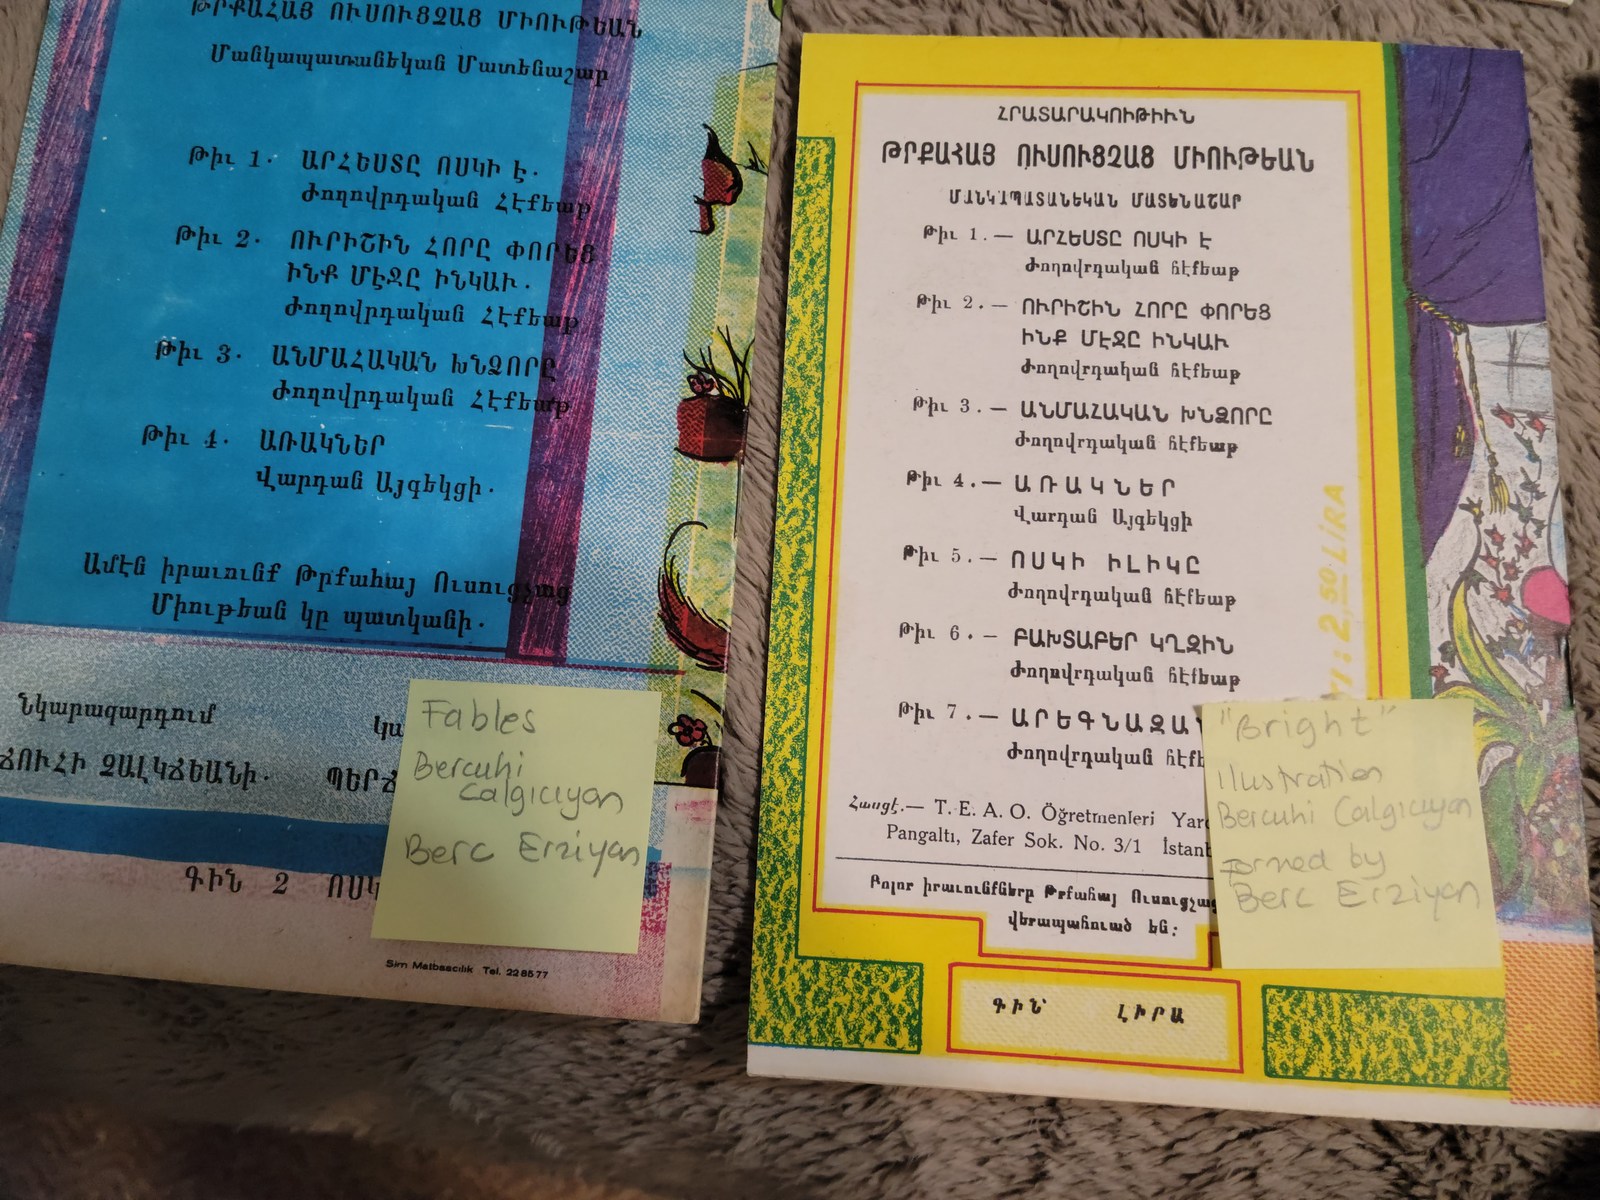 ԹՐՔԱՀԱՅ ՈՒՍՈՒՑՉԱՑ ՄԻՈՒԹԵԱՆ
Մանկապատանեկան Մատենաշար
Թիւ 1. ԱՐՀԵՍՏԸ ՈՍԿԻ Է.
Ժողովրդական Հէքեաթ
Թիւ 2. ՈՒՐԻՇԻՆ ՀՈՐԸ ՓՈՐԵՑ
ԻՆՔ ՄԷՋԸ ԻՆԿԱՒ.
Ժողովրդական Հէքեաթ
Թիւ 3. ԱՆՄԱՀԱԿԱՆ ԽՆՁՈՐԸ
Ժողովրդական Հէքեաթ
Թիւ 4. ԱՌԱԿՆԵՐ
Վարդան Այգեկցի.
Ամէն իրաւունք Թրքահայ Ուսուցչաց
Միութեան կը պատկանի.
Նկարազարդում
ՃՈՒՀԻ ՉԱԼԿՃԵԱՆԻ.
ԳԻՆ 2
Sim Matbaacılık Tel. 22 85 77
Fables
Bercuhi
Calgıcıyan
Berc Erziyan
ՀՐԱՏԱՐԱԿՈՒԹԻՒՆ
ԹՐՔԱՀԱՅ ՈՒՍՈՒՑՉԱՑ ՄԻՈՒԹԵԱՆ
ՄԱՆԿԱՊԱՏԱՆԵԿԱՆ ՄԱՏԵՆԱՇԱՐ
Թիւ 1.— ԱՐՀԵՍՏԸ ՈՍԿԻ Է
Ժողովրդական հէքեաթ
Թիւ 2.— ՈՒՐԻՇԻՆ ՀՈՐԸ ՓՈՐԵՑ
ԻՆՔ ՄԷՋԸ ԻՆԿԱՒ
Ժողովրդական հէքեաթ
Թիւ 3.— ԱՆՄԱՀԱԿԱՆ ԽՆՁՈՐԸ
Ժողովրդական հէքեաթ
Թիւ 4.— ԱՌԱԿՆԵՐ
Վարդան Այգեկցի
Թիւ 5.— ՈՍԿԻ ԻԼԻԿԸ
Ժողովրդական հէքեաթ
Թիւ 6.— ԲԱԽՏԱԲԵՐ ԿՂԶԻՆ
Ժողովրդական հէքեաթ
Թիւ 7.— ԱՐԵԳՆԱԶԱՆ
Ժողովրդական
Հասցէ.— T. E. A. O. Öğretmenleri
Pangaltı, Zafer Sok. No. 3/1
Բոլոր իրաւունքները Թրքահայ Ուսուցչաց
վերապահուած են:
ԳԻՆ ԼԻՐԱ
2,50 LİRA
"Bright"
illustration
Bercuhi Calgıcıyan
Formed by
Berc Erziyan